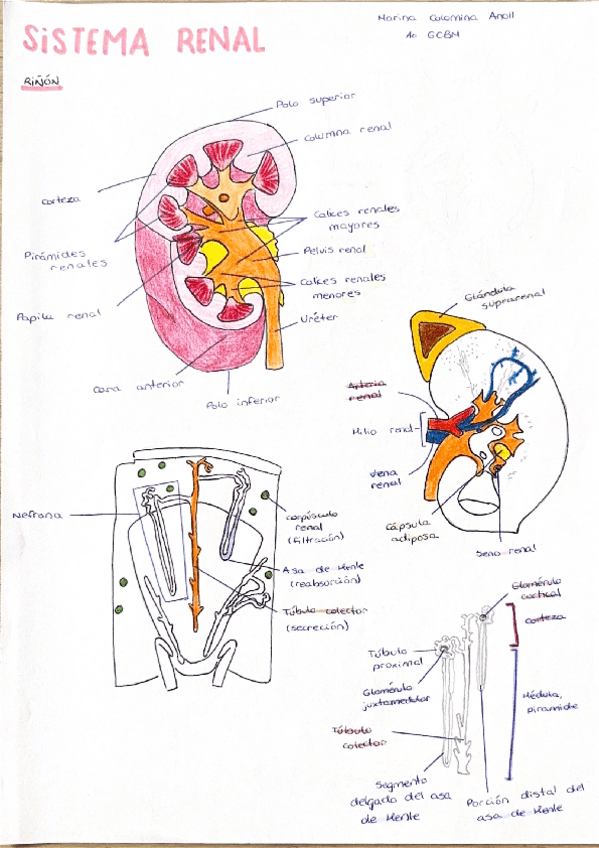 Marina Colomina Anoll
1o GCBM
SISTEMA RENAL
RIÑÓN
Polo superior
Columna renal
Corteza
Calices renales
mayores
Pirámides
renales
Pelvis renal
Calices renales
menores
Papila renal
Uréter
Cara anterior
Polo inferior
Glándula
suprarrenal
Arteria
renal
Hilio renal
Vena
renal
Cápsula
adiposa
Seno renal
Nefrona
Corpúsculo
renal
(filtración)
Asa de Henle
(reabsorción)
Túbulo colector
(secreción)
Glomérulo
cortical
Corteza
Túbulo
proximal
Glomérulo
juxtamedular
Médula,
piramide
Túbulo
colector
Segmento
delgado del asa
de Henle
Porción distal del
asa de Henle